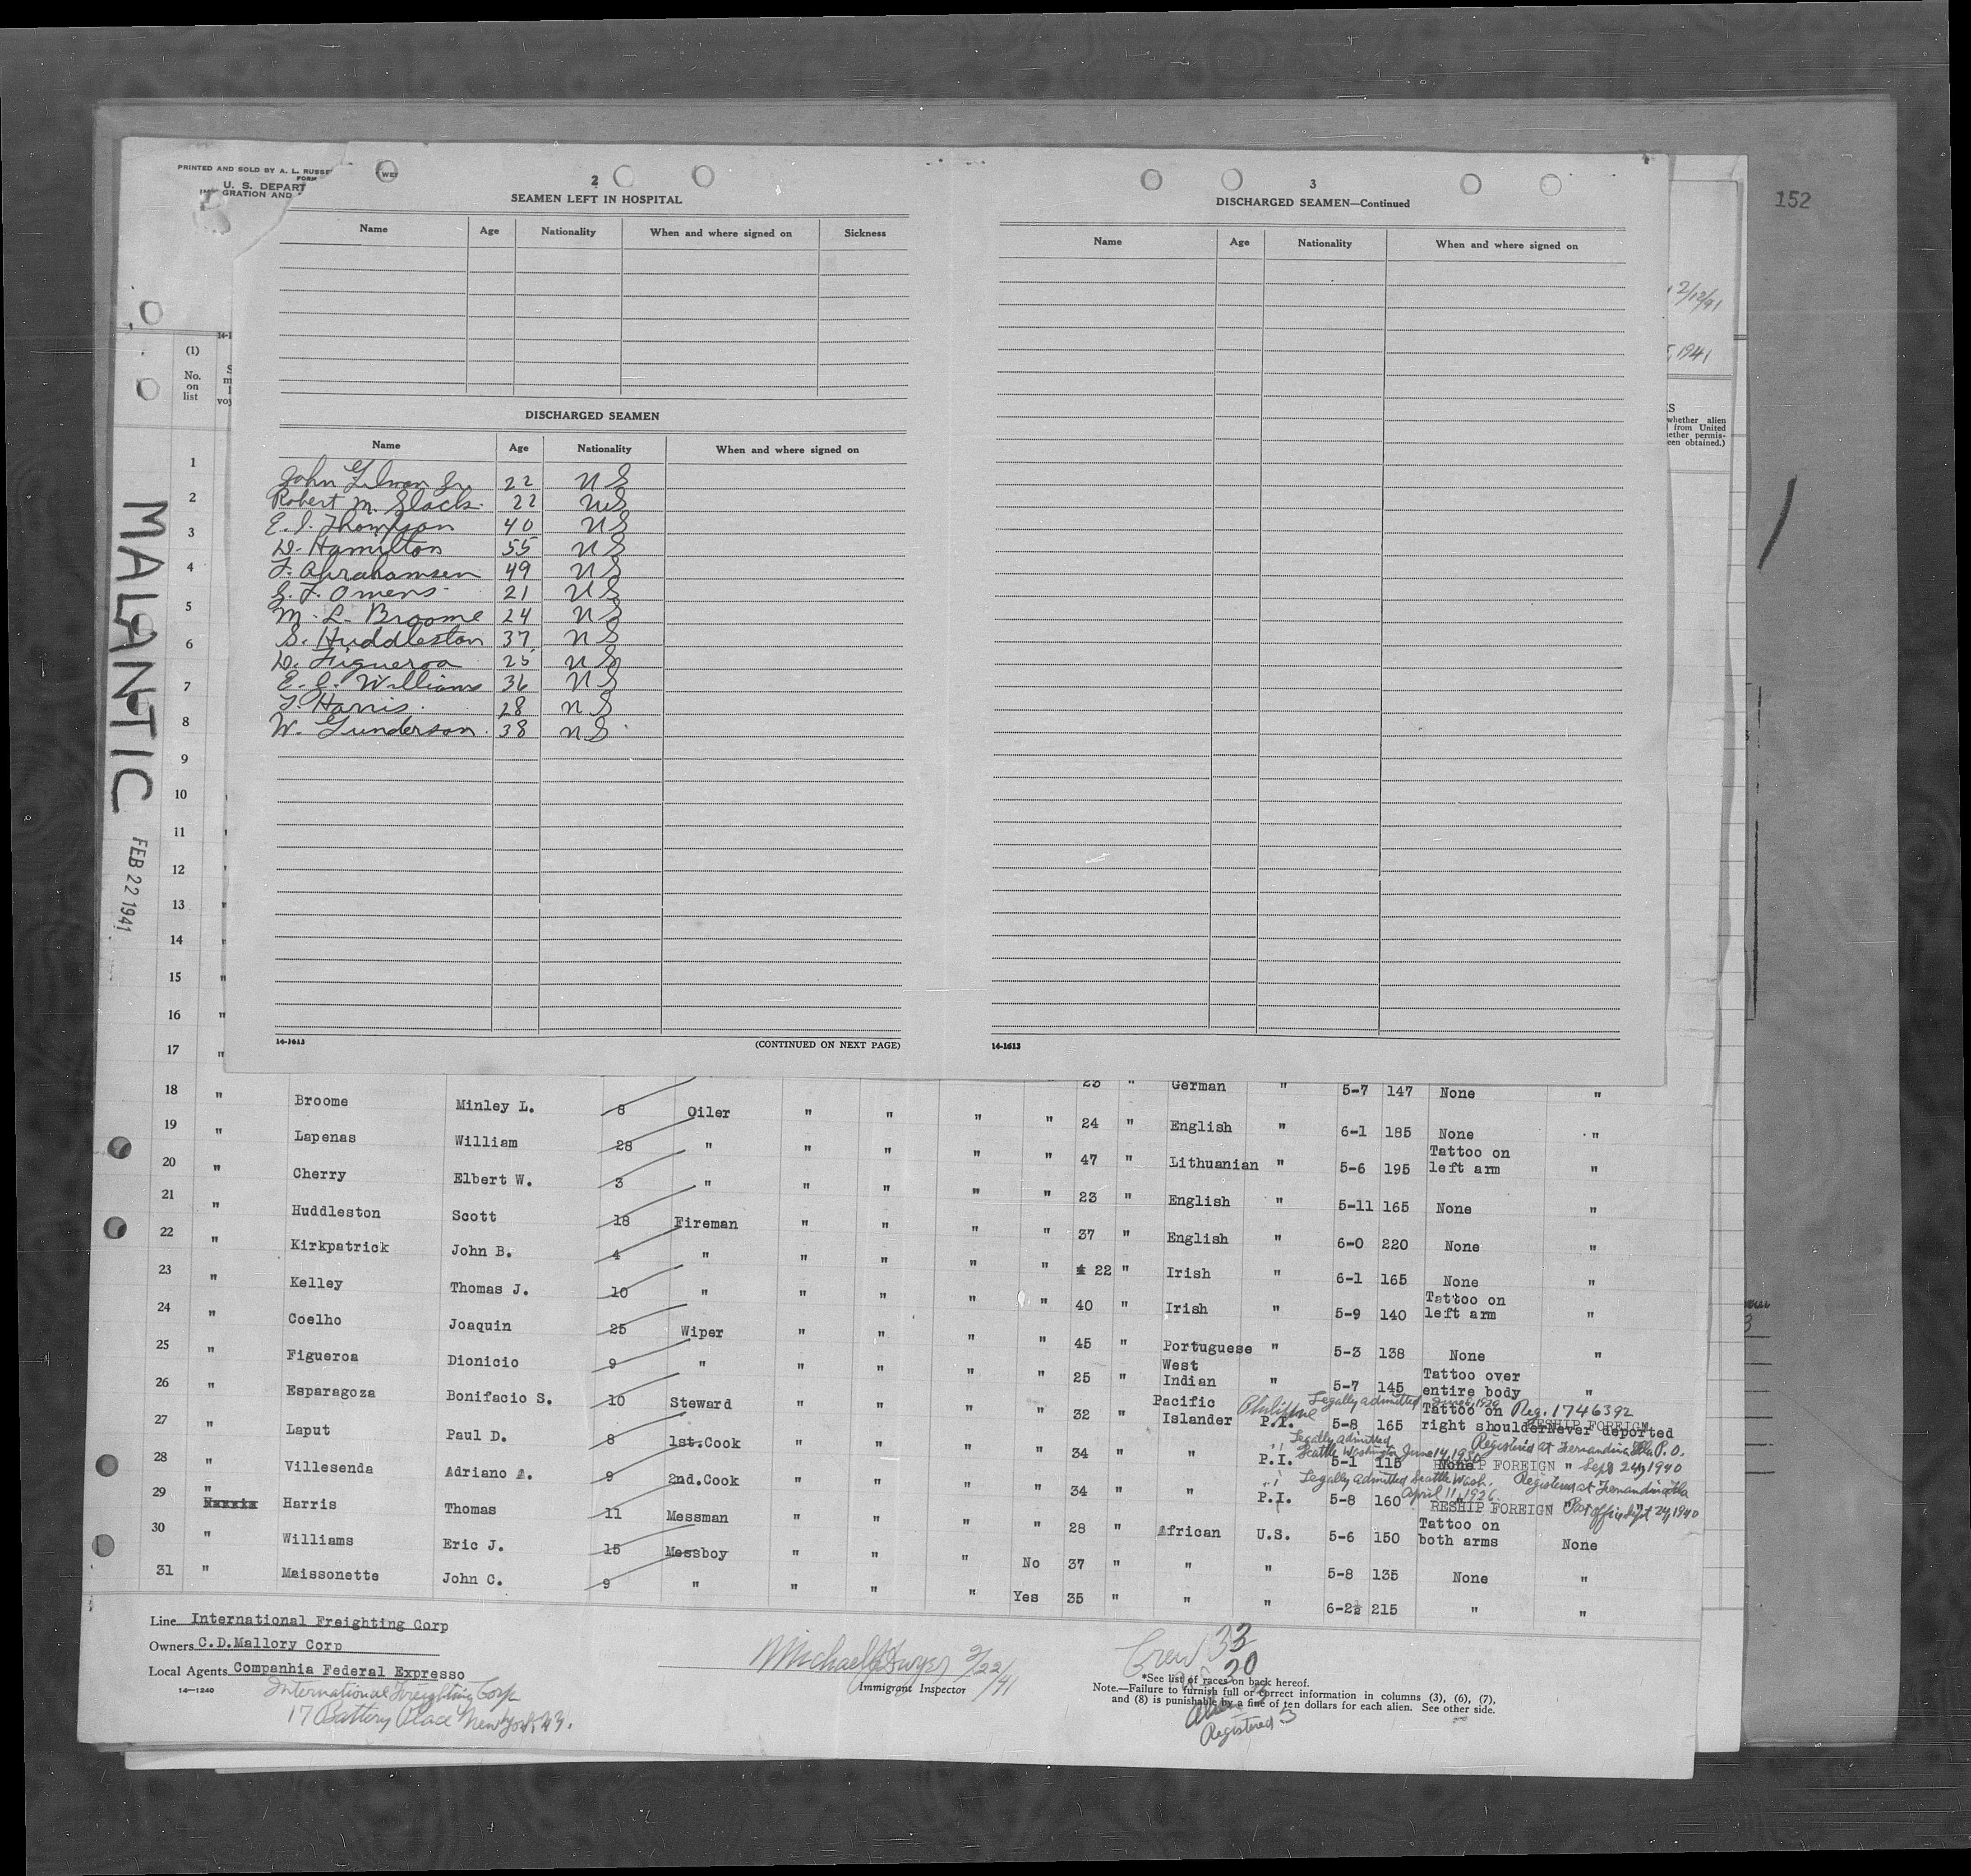 PRINTED AND SOLD BY A. L. RUSSE
FORM
U. S. DEPART
GRATION AND
2
SEAMEN LEFT IN HOSPITAL
Name Age Nationality When and where signed on Sickness
DISCHARGED SEAMEN
Name Age Nationality When and where signed on
Robert M. Slack 22 US
E. J. Thompson 40 US
D. Hamilton 55 US
F. Abrahamsen 49 US
G. F. Omens 21 US
M. L. Broome 24 US
S. Huddleston 37 US
D. Figueroa 25 US
E. J. Williams 36 US
T. Harris 28 US
W. Gunderson 38 US
14-1613
(CONTINUED ON NEXT PAGE)
3
DISCHARGED SEAMEN—Continued
Name Age Nationality When and where signed on
14-1613
152
2/12/41
1941
whether alien
from United
ether permis-
een obtained.)
MALANTIC
FEB 22 1941
(1)
No.
on
list
1
2
3
4
5
6
7
8
9
10
11
12
13
14
15
16 "
17 "
18 " Broome Minley L. 8 Oiler " " " " 24 " English " 6-1 185 None "
23 " German " 5-7 147 None "
19 " Lapenas William 28 " " " " " 47 " Lithuanian " 5-6 195 Tattoo on left arm "
20 " Cherry Elbert W. 3 " " " " " 23 " English " 5-11 165 None "
21 " Huddleston Scott 18 Fireman " " " " 37 " English " 6-0 220 None "
22 " Kirkpatrick John B. 4 " " " " " 22 " Irish " 6-1 165 None "
23 " Kelley Thomas J. 10 " " " " " 40 " Irish " 5-9 140 Tattoo on left arm "
24 " Coelho Joaquin 25 Wiper " " " " 45 " Portuguese " 5-3 138 None "
25 " Figueroa Dionicio 9 " " " " " 25 " West Indian " 5-7 145 Tattoo over entire body "
26 " Esparagoza Bonifacio S. 10 Steward " " " " 32 " Pacific Islander Philippine P.I. 5-8 165 Legally admitted Tattoo on right shoulder Reg. 1746392 RESHIP FOREIGN Never deported
27 " Laput Paul D. 8 1st.Cook " " " " 34 " " P.I. 5-1 115 Legally admitted Seattle Washington June 14, None RESHIP FOREIGN " Registered at Fernandina Fla P.O. Sept 24, 1940
28 " Villesenda Adriano A. 9 2nd.Cook " " " " 34 " " P.I. 5-8 160 Legally admitted Seattle Wash. April 11, 1926. RESHIP FOREIGN Registered at Fernandina Fla Post office Sept 24, 1940
29 " Harris Thomas 11 Messman " " " " 28 " African U.S. 5-6 150 Tattoo on both arms None
30 " Williams Eric J. 15 Messboy " " " No 37 " " " 5-8 135 None "
31 " Maissonette John C. 9 " " " " Yes 35 " " " 6-2½ 215 " "
Line International Freighting Corp
Owners C.D.Mallory Corp
Local Agents Companhia Federal Expresso
14—1240
International Freighting Corp
17 Battery Place New York N.Y.
Michael J Dwyer 2/22/41
Immigrant Inspector
Crew 33
20
*See list of races on back hereof.
Note.—Failure to furnish full or correct information in columns (3), (6), (7),
and (8) is punishable by a fine of ten dollars for each alien. See other side.
Registered 3